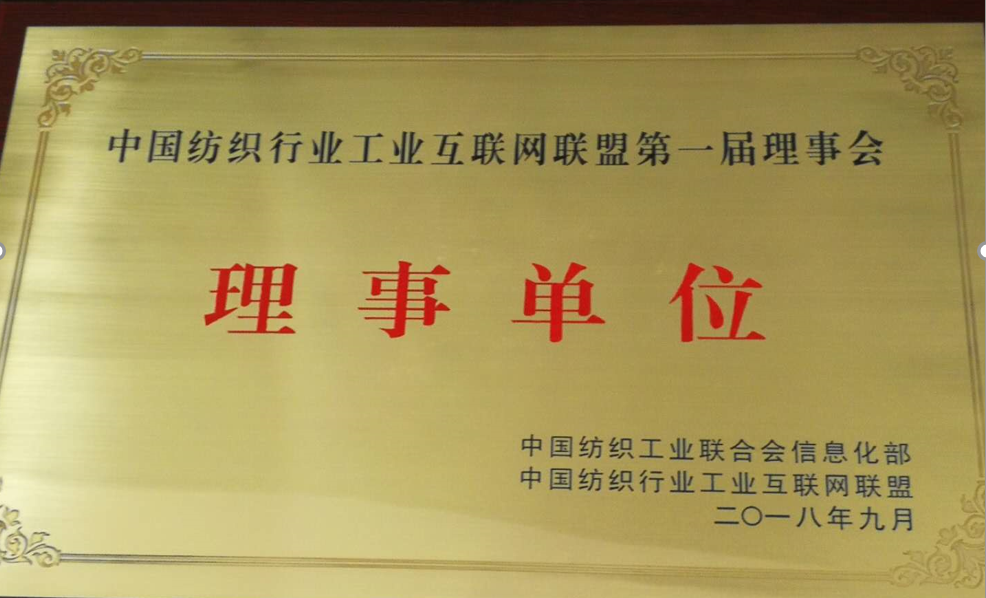 中国纺织行业工业互联网联盟第一届理事会
理事单位
中国纺织工业联合会信息化部
中国纺织行业工业互联网联盟
二〇一八年九月